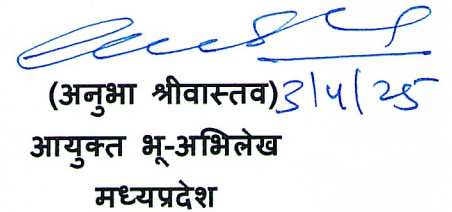 (अनुभा श्रीवास्तव) 3/4/25
आयुक्त भू-अभिलेख
मध्यप्रदेश